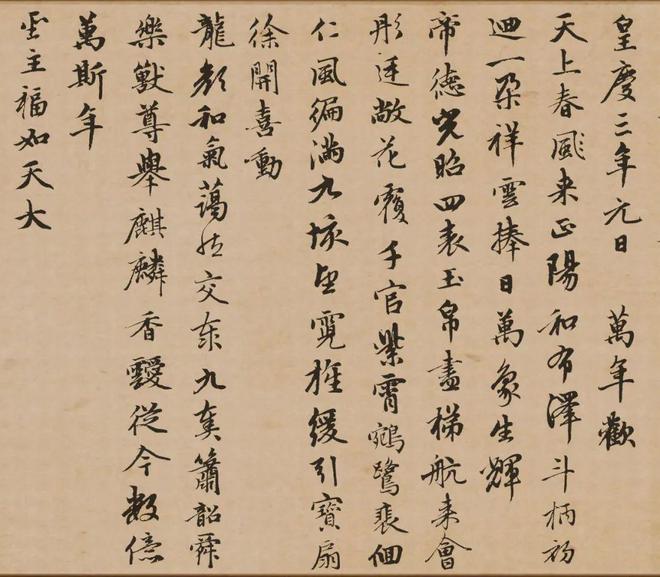 皇慶三年元日 萬年歡
天上春風来正陽和布澤斗柄初
迴一朵祥雲捧日萬象生輝
帝德光昭四表玉帛盡梯航来會
彤廷敞花覆千官紫霄鵷鷺裴佪
仁風徧滿九垓望霓旌緩引寶扇
徐開喜動
龍顔和氣藹然交泰九奏簫韶舜
樂獸尊舉麒麟香靉從今數億
萬斯年
聖主福如天大